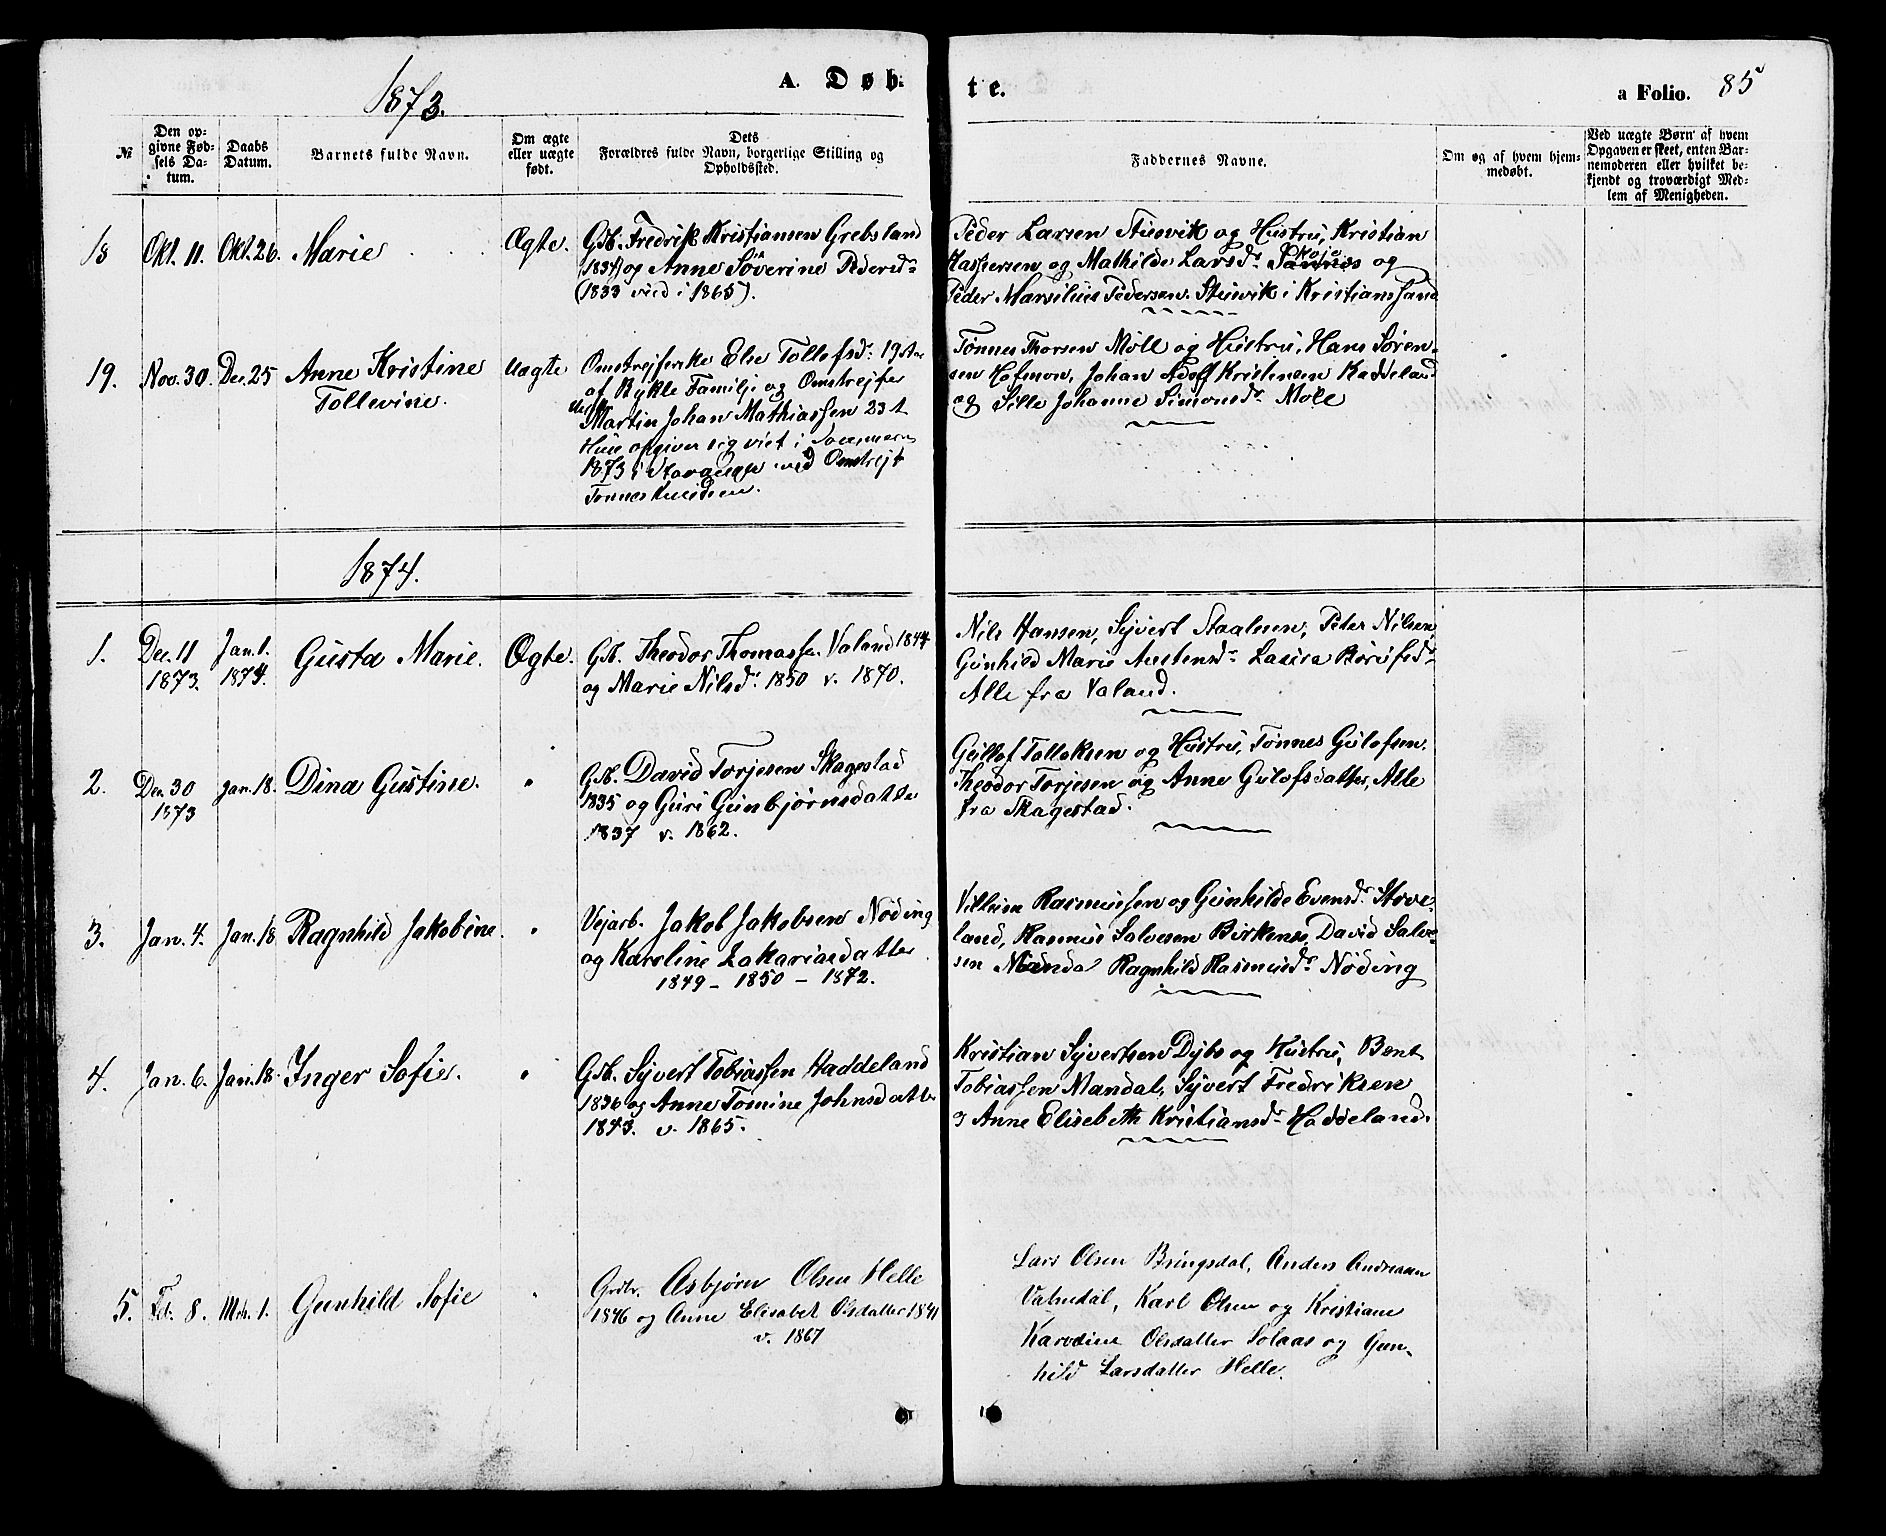 1873.
A. Døb-
te.
a Folio. 85
№
Den op-
givne Fød-
sels Da-
tum.
Daabs
Datum.
Barnets fulde Navn.
Om ægte
eller uægte
født.
Dets
Forældres fulde Navn, borgerlige Stilling og
Opholdssted.
Faddernes Navne.
Om og af hvem hjem-
medøbt.
Ved uægte Børn af hvem
Opgaven er skeet, enten Bar-
nemoderen eller hvilket be-
kjendt og troværdigt Med-
lem af Menigheden.
18
Okt. 11.
Okt. 26.
Marie
Ægte.
Gb. Fredrik Kristiansen Grebsland
(1834) og Anne Søverine Pedersd.
(1833 vied i 1865).
Peder Larsen Stusvik og Hustru, Kristian
Kaspersen og Mathilde Larsd. og
Peder Marsilius Pedersen Stusvik i Kristianssand
19.
Nov. 30.
Des. 25
Anne Kristine
Tollevine.
Uægte
Omstrejferske Else Tollefsd. 19
af Bykle Familje og Omstrejfer
Martin Johan Mathiassen 23
Hun opgiver sig viet i Sommeren
1873 i Stavanger ved Omstrejf
Tønnes Knudsen.
Tønnes Thorsen Moll og Hustru, Hans Søren-
sen Hofmon, Johan Adolf Kristensen Haddeland
og Sille Johanne Simonsd. Moll
1874.
1.
Dec. 11
1873.
Jan. 1.
1874.
Gusta Marie.
Ægte.
Gb. Theodor Thomass. Valand 1844
og Marie Nilsd. 1850 v. 1870.
Nils Hansen, Syvert Staalsen, Peter Nilsen,
Gunhild Marie Austensd. Laura Børufsd.
Alle fra Valand.
2.
Des. 30
1873
Jan. 18.
Dina Gustine.
"
Gb. David Torjesen Skagestad
1835 og Guri Gunbjørnsdatter
1837 v. 1862.
Gullof Tolloksen og Hustru, Tønnes Gulofsen,
Theodor Torjesen og Anne Gulofsdatter, Alle
fra Skagestad.
3.
Jan. 4.
Jan. 18
Ragnhild Jakobine
"
Vejarb. Jakob Jakobsen Nøding
og Karoline Zakariasdatter
1849 - 1850 - 1872.
Villum Rasmussen og Gunhilde Evensd. Stove-
land, Rasmus Salvesen Birkenes, David Salve-
sen Mandal Ragnhild Rasmusd. Nøding
4.
Jan. 6.
Jan. 18.
Inger Sofie.
"
Gb. Syvert Tobiassen Haddeland
1836 og Anne Tomine Johnsdatter
1843. v. 1865.
Kristian Syvertsen Dybo og Hustru, Bent
Tobiassen Mandal, Syvert Fredriksen
& Anne Elisebeth Kristiansd. Haddeland.
5.
Feb. 8.
Mch. 1.
Gunhild Sofie
"
Grdbr. Asbjørn Olsen Helle
1846 og Anne Elisabet Olsdatter 1841
v. 1867
Lars Olsen Bringsdal, Anders Andreasen
Valndal, Karl Olsen og Kristiane
Karoline Olsdatter Solaas og Gun-
hild Larsdatter Helle.